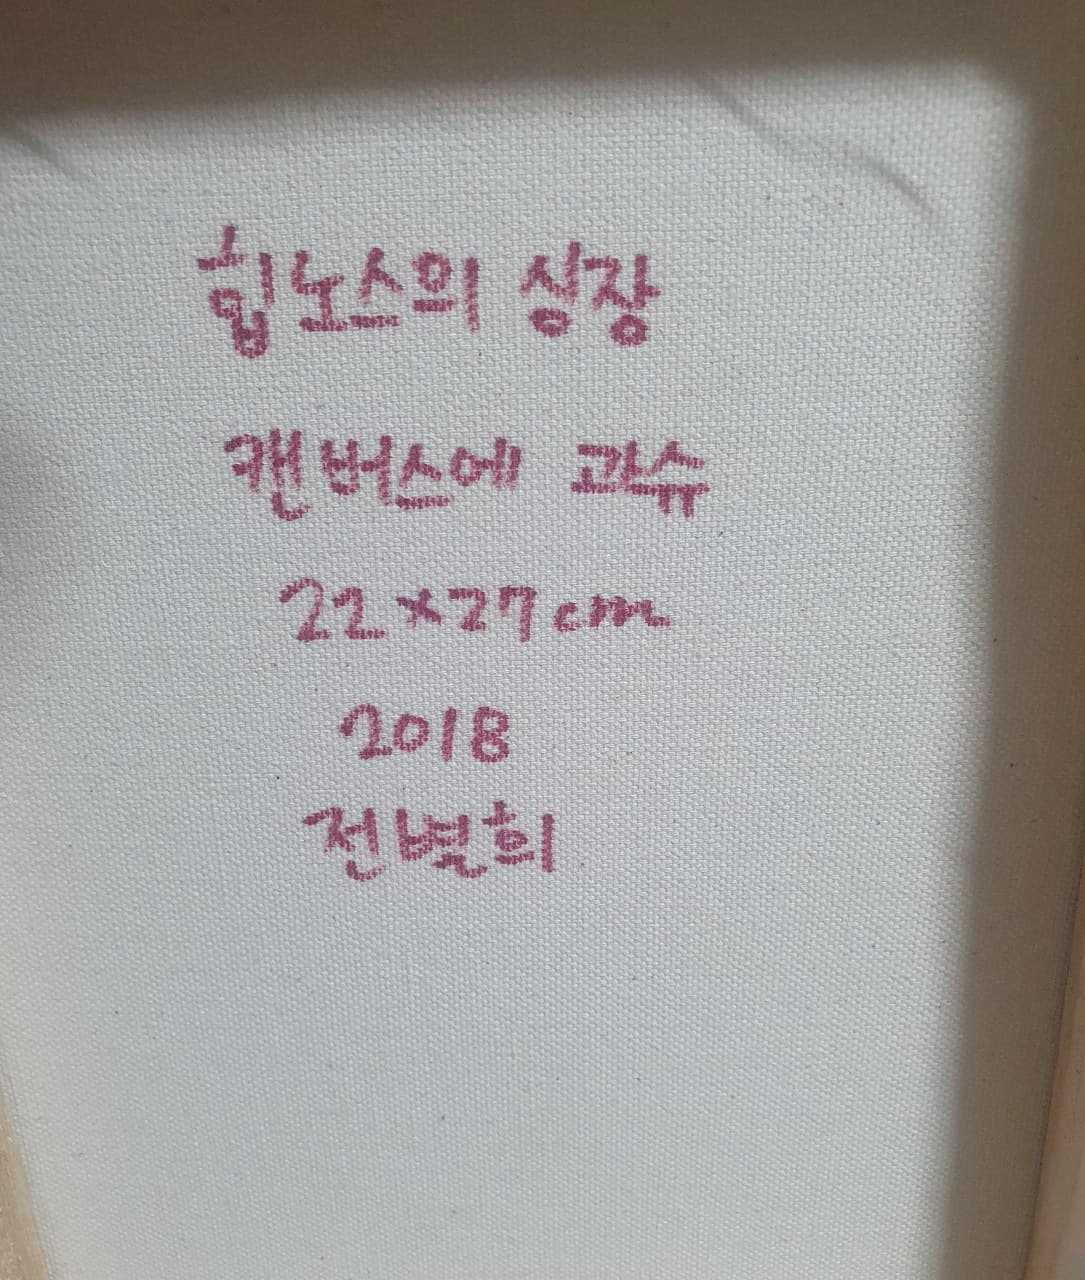 힙노스의 심장
캔버스에 과슈
22×27cm
2018
전별희